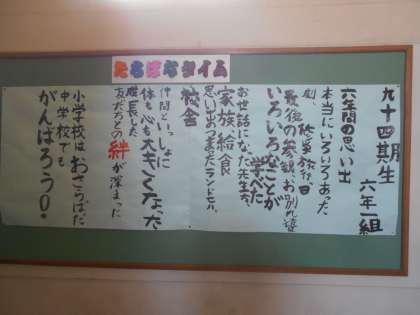 たちばなタイム
九十四期生
六年一組
六年間の思い出
本当にいろいろあった
劇、修学旅行、日
最後の参観、お別れ音
いろいろなことが
学べた
お世話になった先生方
家族 給食
思い出のつまったランドセル
校舎
仲間といっしょに
体も心も大きくなった
成長した
友だちとの絆が深まった
小学校はおさらばだ
中学校でも
がんばろう